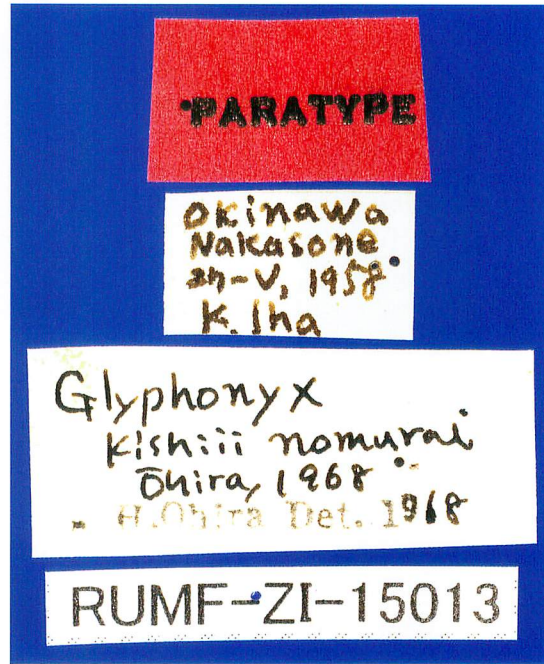 PARATYPE
Okinawa
Nakasone
-V, 1958
K. Iha
Glyphonyx
kishiii nomurai
Ōhira, 1968
H. Ohira Det. 1968
RUMF-ZI-15013